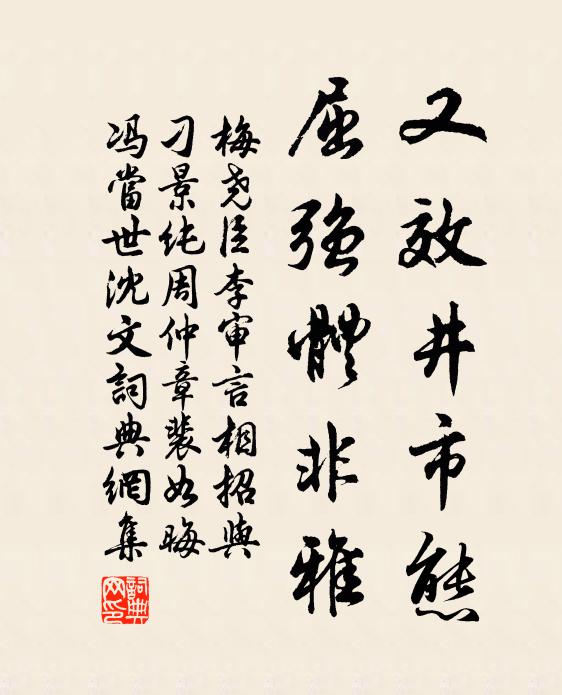 又效井市態
屈強體非雅
梅尧臣李审言相招與
刁景纯周仲章裴如晦
冯當世沈文詞典網集
詞典網印